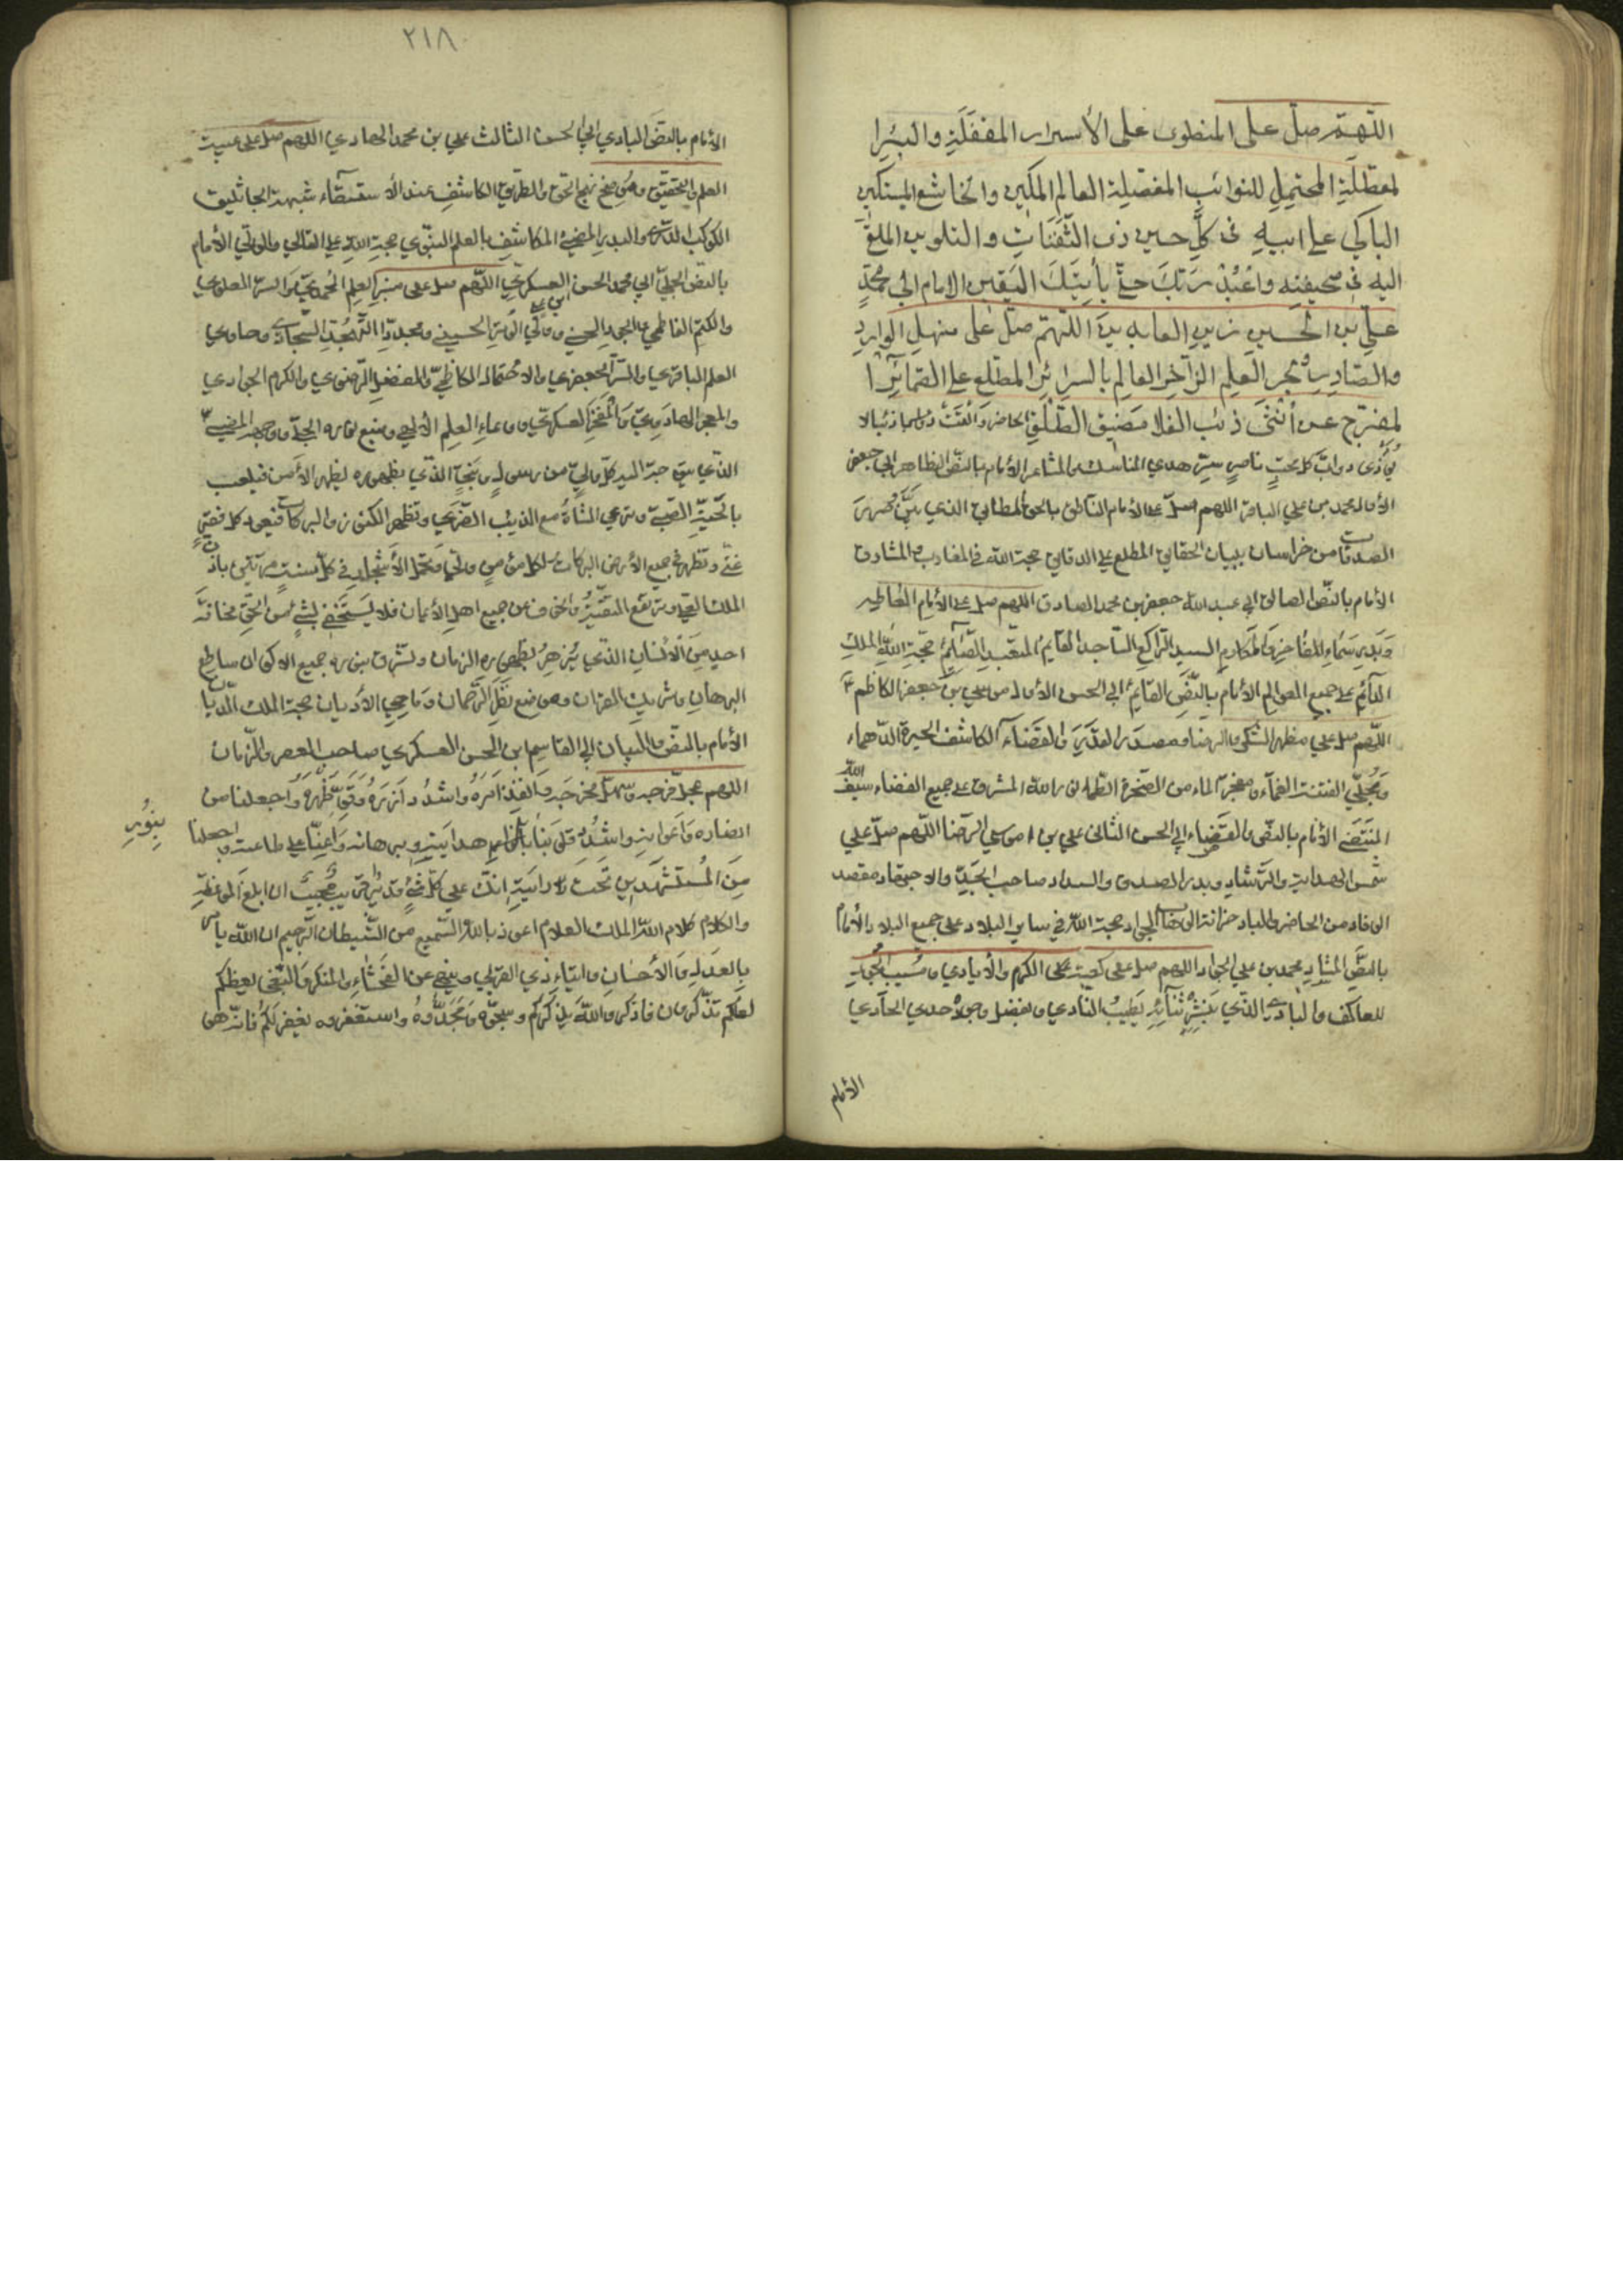 اللهم صل على المنطوى على الأسرار المقفلة والبئر ا
لمعطلة المحتمل للنوائب المفصلة العالم المكين والخاشع المستكين
الباكي على ابيه فى كل حين ذى الثفنات والتلويب الملقى
اليه فى صحيفته واعبد ربك حتى يأتيك اليقين الامام ابي محمد
على بن الحسين زين العابدين اللهم صل على منهل الوارد
والصادر بحر العلم الزاخر العالم بالسرائر المطلع على الضمائر ا
لمفرج عن أنثى ذئب الفلا مضيق الطلق الحاضر
يؤذى دواب كل محب ناصر هدي المناسك والمشاعر الأمام بالنص الظاهر ابي جعفر
الأول محمد بن علي الباقر اللهم صل على الأمام الناطق بالحق المطابق الذي
من خراسان ببيان الحقايق المطلع على الدقايق حجة الله في المغارب والمشارق
الأمام بالنص الصادق ابي عبد الله جعفر بن محمد الصادق اللهم صل على الأمام
وبدر سماء المفاخر والمكارم السيد الراكع الساجد القايم المتعبد الصائم حجة الله الملك
الدائم على جميع العوالم الأمام بالنص القايم ابي الحسن الأول موسى بن جعفر الكاظم
اللهم صل على مظهر الشكر والرضا ومصدر القدر والقضاء الكاشف الحيرة الدهماء
ومجلي الفتنة الغماء ومفجر الماء من الصخرة الظماء نور الله المشرق على جميع الفضاء سيف الله
المنتضى الأمام بالنص والقضاء ابي الحسن الثاني علي بن موسى الرضا اللهم صل علي
شمس الهداية والرشاد وبدر الصدق والسداد صاحب الجد والاجتهاد مقصد
الوفاد من الحاضر والباد خزانة الجواد حجة الله في ساير البلاد وعلى جميع البلاد الأمام
محمد بن علي الجواد اللهم صل على كعبة الكرم والأيادي
للعاكف والبادي الذي بنشر ثنائه يطيب النادي وبفضل وجوده حدي الحادي
الأمام
٢١٨
الأمام بالنص البادي ابي الحسن الثالث علي بن محمد الهادي اللهم صل على عيبة
العلم والتحقيق وموضح نهج الحق والطريق الكاشف عند الاستسقاء شبهة الجاثليق
الكوكب الدري والبدر المضيء المكاشف بالعلم النبوي حجة الله على القالي والولي الأمام
بالنص الجلي ابي محمد الحسن العسكري اللهم صل على منبر العلم المحمدي والسر العلوي
والكتم الفاطمي والجود الحسني والوتر الحسيني والتهجد السجادي وحاوي
العلم الباقري والسر الجعفري والاحتمال الكاظمي والفضل الرضوي والكرم الجوادي
والمعجز الهادوي والمفخر العسكري وعاء العلم الأزلي ومنبع
الذي بين جديه كل ولي من رسول ونبي الذي بظهوره يظهر الأمن فيلعب
بالحية الصبي وترعي الشاة مع الذئب الضري وتظهر الكنوز والبركات فيعود كل فقير
غني وتظهر جميع الأرض البركات لكل مؤمن ولي وتحمل الأشجار في كل سنة مرتين باذن
الملك العلي وترتفع التقية والخوف عن جميع اهل الأيمان فلا يستخفي بشيء من الحق مخافة
احد من الأنسان الذي يزهر بظهوره الزمان وتشرق بنوره جميع الاكوان ساطع
البرهان وشريك القران وموضع نظر الرحمان وماحي الأديان حجة الملك الديان
الأمام بالنص والبيان ابي القاسم ابن الحسن العسكري صاحب العصر والزمان
اللهم عجل فرجه وسهل مخرجه وانفذ امره واشدد ازره وقو ظهره واجعلنا من
انصاره وأعوانه واشدد قلوبنا هدايته وبرهانه وأعنا على طاعته واجعلنا
بنور
من المستشهدين تحت رايته انك على كل شيء قدير قريب مجيب ان ابلغ الموعظة
والكلام كلام الله الملك العلام اعوذ بالله السميع من الشيطان الرجيم ان الله يأمر
بالعدل والأحسان وايتاء ذي القربي وينهي عن الفحشاء والمنكر والبغي يعظكم
لعلكم تذكرون فاذكروا الله يذكركم وسبحوه ومجدوه واستغفروه يغفر لكم فانه هو